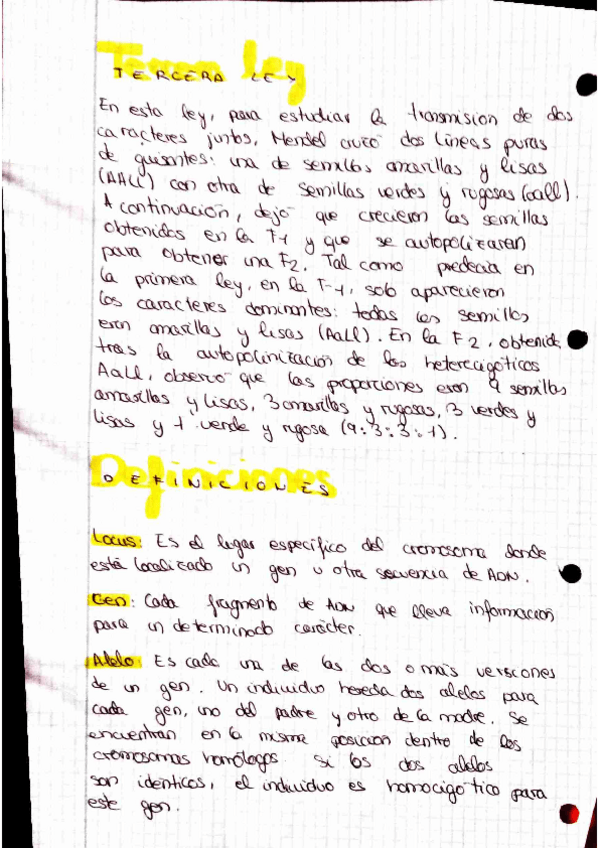 Tercera ley
TERCERA LEY
En esta ley, para estudiar la transmisión de dos
caracteres juntos, Mendel cruzó dos líneas puras
de guisantes: una de semillas amarillas y lisas
(AALL) con otra de semillas verdes y rugosas (aall).
A continuación, dejó que crecieran las semillas
obtenidas en la F1 y que se autopolizaran
para obtener una F2. Tal como predecia en
la primera ley, en la F1, solo aparecieron
los caracteres dominantes: todas las semillas
eran amarillas y lisas (AaLl). En la F2, obtenida
tras la autopolinización de los heterecigóticos
AaLl, observó que las proporciones eran 9 semillas
amarillas y lisas, 3 amarillas y rugosas, 3 verdes y
lisas y 1 verde y rugosa (9:3:3:1).
Definiciones
DEFINICIONES
Locus: Es el lugar específico del cromosoma donde
está localizado un gen u otra secuencia de ADN.
Gen: Cada fragmento de ADN que lleva información
para un determinado carácter.
Alelo: Es cada una de las dos o más versiones
de un gen. Un individuo hereda dos alelos para
cada gen, uno del padre y otro de la madre. Se
encuentran en la misma posición dentro de los
cromosomas homólogos. Si los dos alelos
son identicos, el individuo es homocigótico para
este gen.